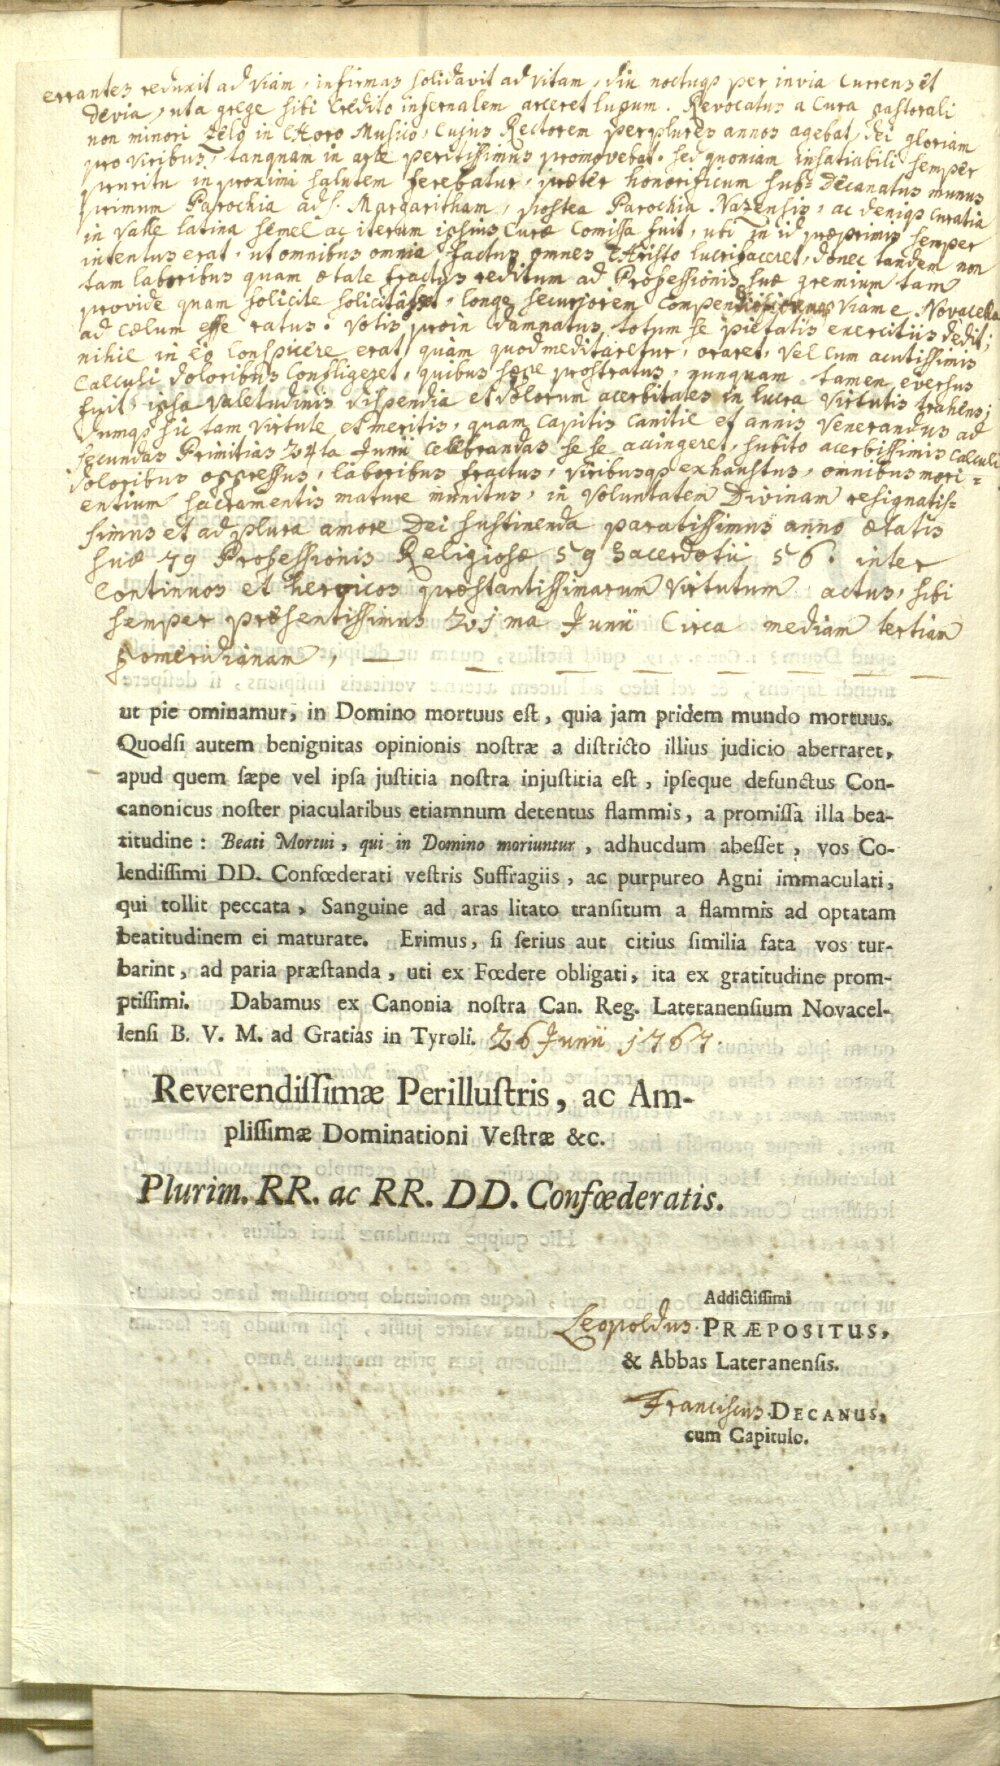 errantes reduxit ad Viam, infirmas solidavit ad vitam, diu noctuqs per invia currens et
devia, uta grege sibi credito infernalem arceret lupum. Revocatus a Cura pastorali
non minori Zelo in Choro Musico, Cujus Rectorem per plures annos agebat, Dei gloriam
pro viribus, tanquam in arte peritissimus promovebat. sed quoniam insatiabili semper
pruritu in proximi salutem ferebatur, præter honorificum sub-Decanatus munus
primum Parochia ad S. Margaritham, postea Parochia Nazensis, ac deniqs Curatia
in Valle latina semel ac iterum ipsius Curæ Comissa fuit, uti in id præprimis semper
intentus erat, ut omnibus omnia factus omnes Christo lucrifaceret, donec tandem non
tam laboribus quam ætate fractus reditum ad Professionis suæ gremium tam
provide quam solicite solicitavit, longe securiorem Viam e Novacella
ad cælum esse ratus. Votis proin damnatus totum se pietatis exercitiis dedit;
nihil in eo Conspicere erat, quam quod meditaretur, oraret, vel cum acutissimis
Calculi doloribus Confligeret, quibus sæpe prostratus, nunquam tamen eversus
fuit, ipsa valetudinis dispendia et dolorum acerbitates in lucra Virtutis trahens;
Dumqs sic tam virtute et meritis, quam Capitis Canitie et annis Venerandus ad
secundas Primitias 24ta Junii celebrandas se se accingeret, subito acerbissimis Calculi
doloribus oppressus, laboribus fractus, viribusqs exhaustus, omnibus mori=
entium sacramentis mature munitus, in Voluntatem Divinam resignatis-
simus et ad plura amore Dei sustinenda paratissimus anno ætatis
suæ 79 Professionis Religiosæ 59 Sacerdotii 56. inter
Continuos et heroicos præstantissimarum Virtutum actus, sibi
semper præsentissimus 21ma Junii Circa mediam tertiam
pomeridianam,
ut pie ominamur, in Domino mortuus est, quia jam pridem mundo mortuus.
Quodsi autem benignitas opinionis nostræ a districto illius judicio aberraret,
apud quem sæpe vel ipsa justitia nostra injustitia est, ipseque defunctus Con-
canonicus noster piacularibus etiamnum detentus flammis, a promissa illa bea-
titudine : Beati Mortui, qui in Domino moriuntur, adhucdum abesset, vos Co-
lendissimi DD. Confœderati vestris Suffragiis, ac purpureo Agni immaculati,
qui tollit peccata, Sanguine ad aras litato transitum a flammis ad optatam
beatitudinem ei maturate. Erimus, si serius aut citius similia fata vos tur-
barint, ad paria præstanda, uti ex Fœdere obligati, ita ex gratitudine prom-
ptissimi. Dabamus ex Canonia nostra Can. Reg. Lateranensium Novacel-
lensi B. V. M. ad Gratias in Tyroli. 26 Junii 1767.
Reverendissimæ Perillustris, ac Am-
plissimæ Dominationi Vestræ &c.
Plurim. RR. ac RR. DD. Confœderatis.
Addictissimi
Leopoldus PRÆPOSITUS,
& Abbas Lateranensis.
Franciscus DECANUS,
cum Capitulo.